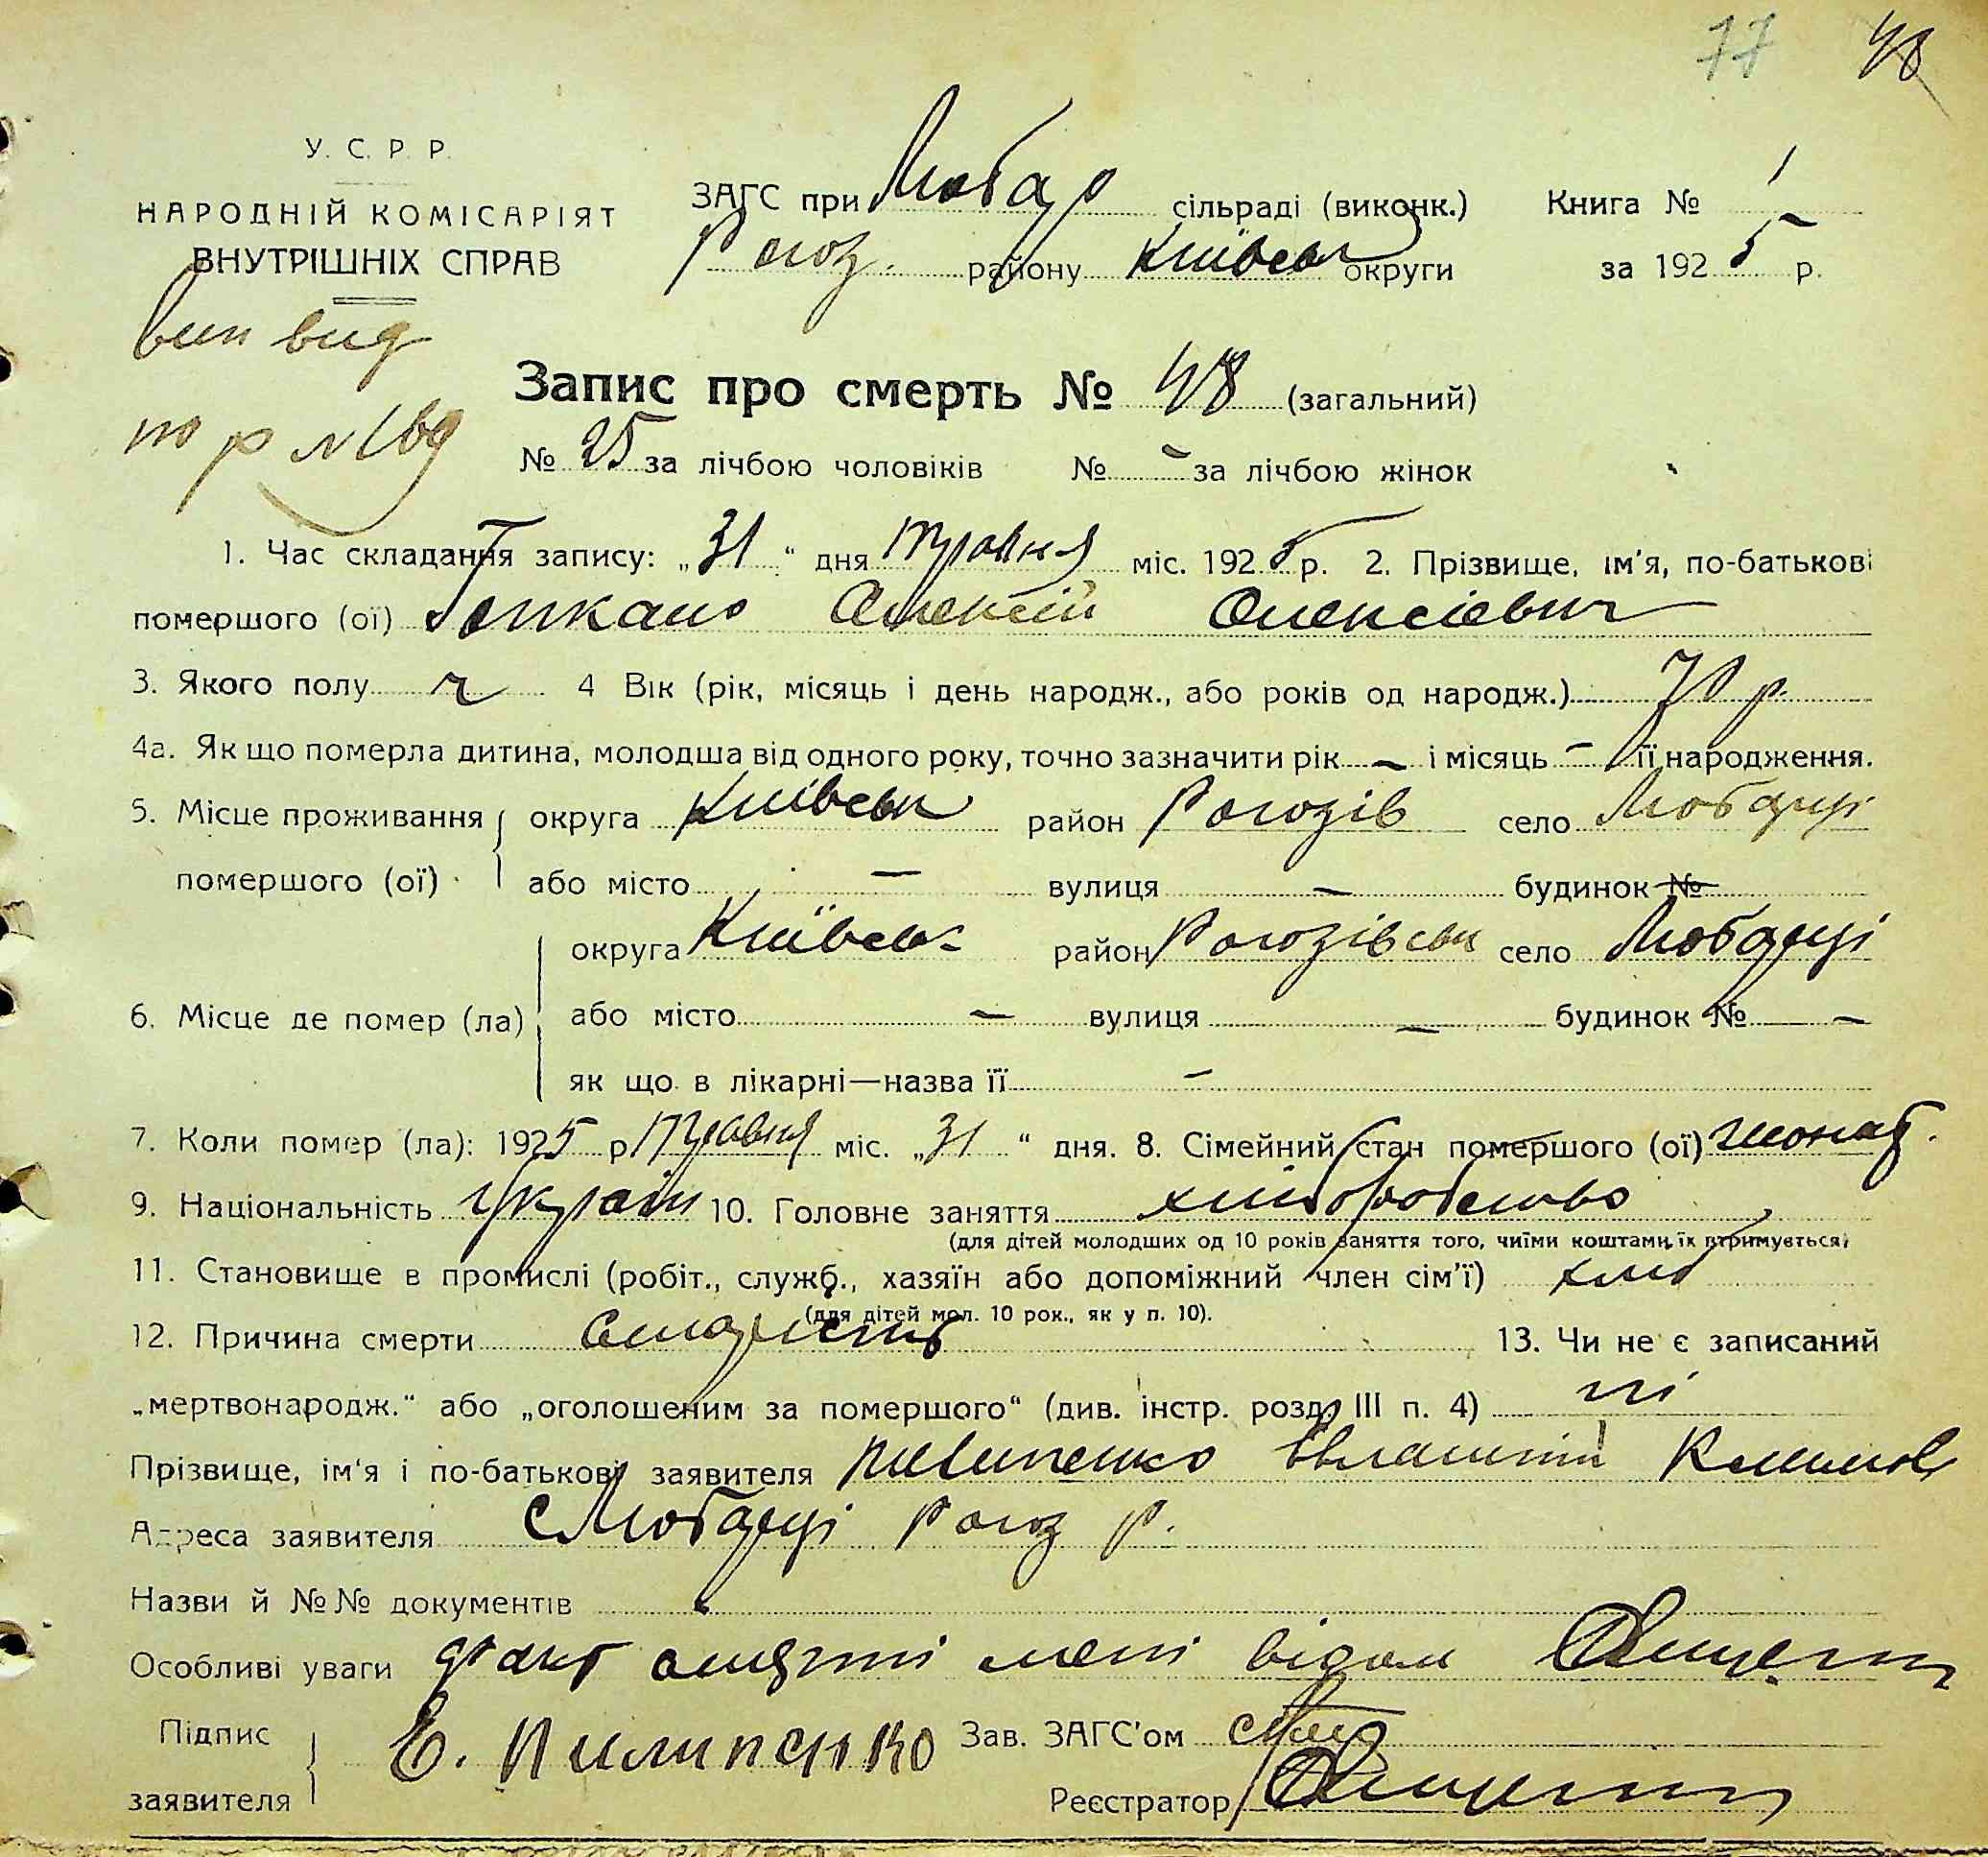 77 48
У. С. Р. Р.
НАРОДНІЙ КОМІСАРІЯТ
ВНУТРІШНІХ СПРАВ
ЗАГС при Любар сільраді (виконк.) Книга № 1
Рогоз. району Київськ округи за 1925 р.
вип вид
Запис про смерть № 48 (загальний)
№ 25 за лічбою чоловіків № - за лічбою жінок
1. Час складання запису: „31“ дня Травня міс. 1925 р. 2. Прізвище, ім'я, по-батькові
помершого (ої) Олексій Олексієвич
3. Якого полу ч 4 Вік (рік, місяць і день народж., або років од народж.) 70 р.
4а. Як що померла дитина, молодша від одного року, точно зазначити рік - і місяць - її народження.
5. Місце проживання помершого (ої) округа Київськ район Рогозів село Любарці
або місто - вулиця - будинок №
6. Місце де помер (ла) округа Київськ район Рогозівськ село Любарці
або місто - вулиця - будинок № -
як що в лікарні—назва її -
7. Коли помер (ла): 1925 р Травня міс. „31“ дня. 8. Сімейний стан помершого (ої) жонат.
9. Національність україн 10. Головне заняття хліборобство
(для дітей молодших од 10 років заняття того, чиїми коштами їх втримується)
11. Становище в промислі (робіт., служб., хазяїн або допоміжний член сім'ї) хліб
(для дітей мол. 10 рок., як у п. 10).
12. Причина смерти старість 13. Чи не є записаний
„мертвонародж.“ або „оголошеним за помершого“ (див. інстр. розд. III п. 4) ні
Прізвище, ім'я і по-батькові заявителя Пилипенко Климов
Адреса заявителя с Любарці Рогоз р.
Назви й №№ документів
Особливі уваги факт смерти мені відом
Підпис заявителя Е. Пилипенко Зав. ЗАГС'ом
Реєстратор